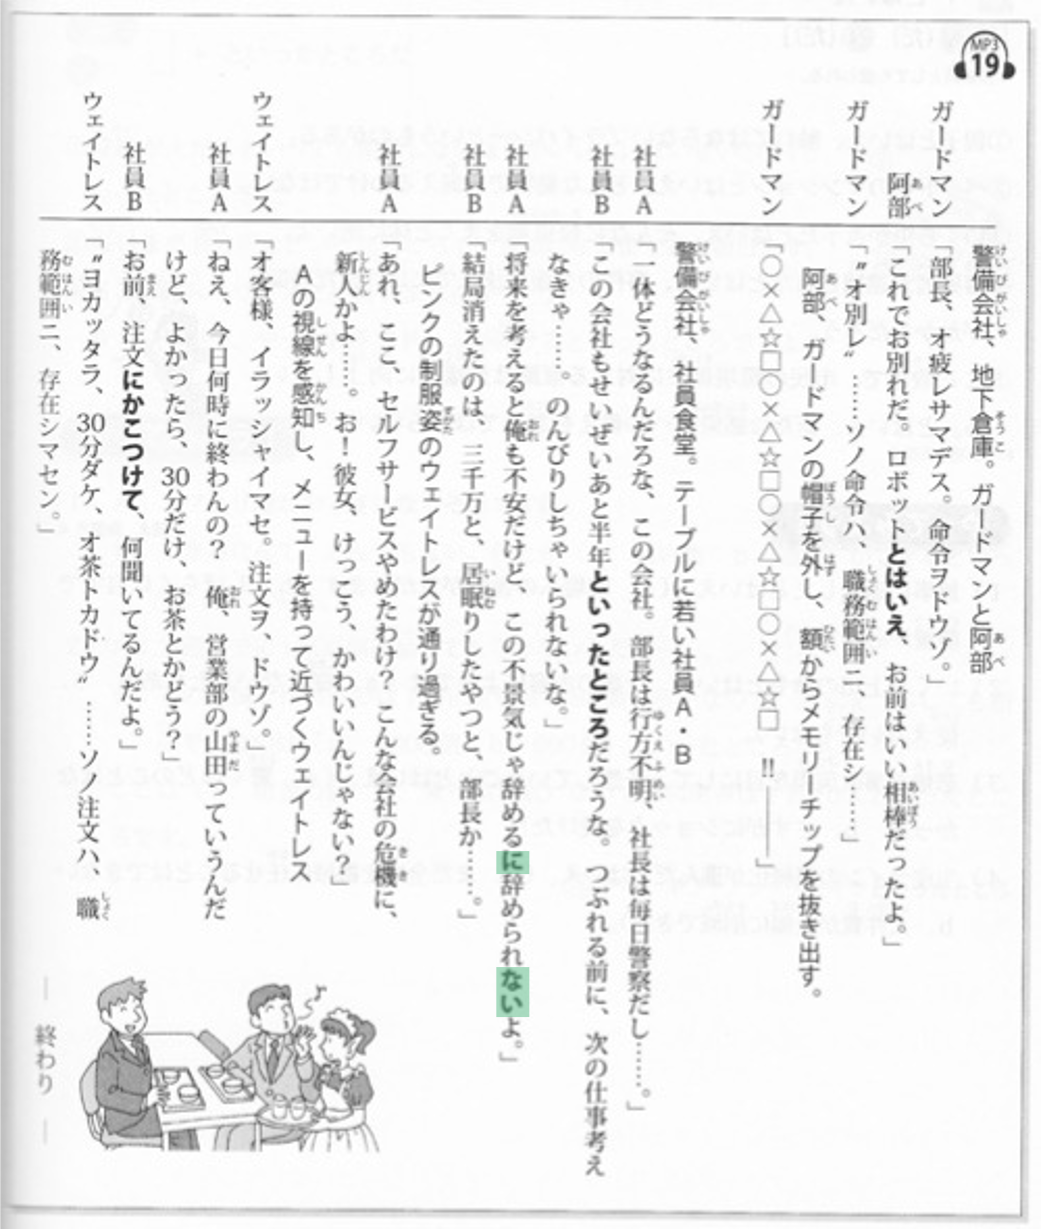 MP3
19
警備会社、地下倉庫。ガードマンと阿部
ガードマン 「部長、オ疲レサマデス。命令ヲドウゾ。」
阿部 「これでお別れだ。ロボットとはいえ、お前はいい相棒だったよ。」
ガードマン 「〝オ別レ〟……ソノ命令ハ、職務範囲ニ、存在シ……」
阿部、ガードマンの帽子を外し、額からメモリーチップを抜き出す。
ガードマン 「○×△☆□○×△☆□○×△☆□○×△☆□ !!――」
警備会社、社員食堂。テーブルに若い社員A・B
社員A 「一体どうなるんだろな、この会社。部長は行方不明、社長は毎日警察だし……。」
社員B 「この会社もせいぜいあと半年といったところだろうな。つぶれる前に、次の仕事考え
なきゃ……。のんびりしちゃいられないな。」
社員A 「将来を考えると俺も不安だけど、この不景気じゃ辞めるに辞められないよ。」
社員B 「結局消えたのは、三千万と、居眠りしたやつと、部長か……。」
ピンクの制服姿のウェイトレスが通り過ぎる。
社員A 「あれ、ここ、セルフサービスやめたわけ？こんな会社の危機に、
新人かよ……。お！彼女、けっこう、かわいいんじゃない？」
Aの視線を感知し、メニューを持って近づくウェイトレス
ウェイトレス 「オ客様、イラッシャイマセ。注文ヲ、ドウゾ。」
社員A 「ねえ、今日何時に終わんの？ 俺、営業部の山田っていうんだ
けど、よかったら、30分だけ、お茶とかどう？」
社員B 「お前、注文にかこつけて、何聞いてるんだよ。」
ウェイトレス 「〝ヨカッタラ、30分ダケ、オ茶トカドウ〟……ソノ注文ハ、職
務範囲ニ、存在シマセン。」
― 終わり ―